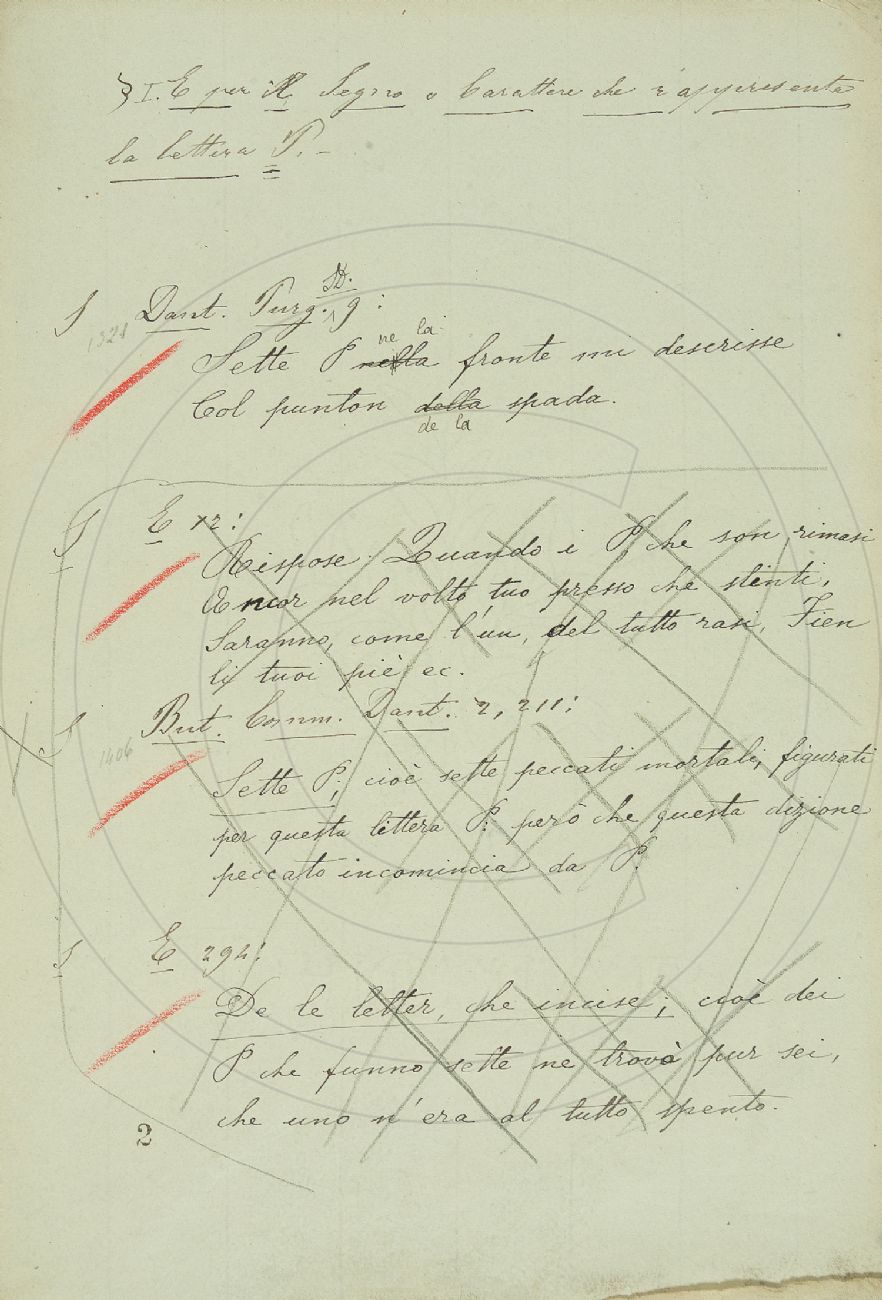 § I. E per il Segno o Carattere che rappresenta
la lettera P. –
S Dant. Purg. SD. 9:
1321
ne la
Sette P nella fronte mi descrisse
Col punton della spada.
de la
S E 12:
Rispose: Quando i P, che son rimasi
Ancor nel volto tuo presso che stinti,
Saranno, come l'un, del tutto rasi, Fien
li tuoi piè ec.
S But. Comm. Dant. 2, 211:
1406
Sette P; cioè sette peccati mortali, figurati
per questa lettera P: però che questa dizione
peccato incomincia da P.
S E 292:
De le letter, che incise; cioè dei
P che funno sette ne trovò pur sei,
che uno n'era al tutto spento.
2